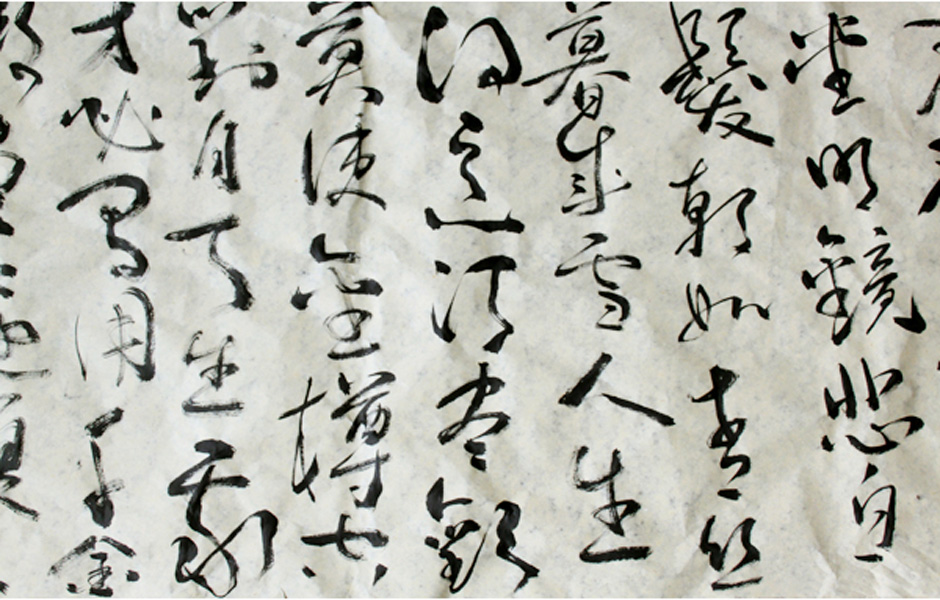 堂明鏡悲白
髮朝如青絲
暮成雪人生
得意須盡歡
莫使金樽空
對月天生我
才必有用千金